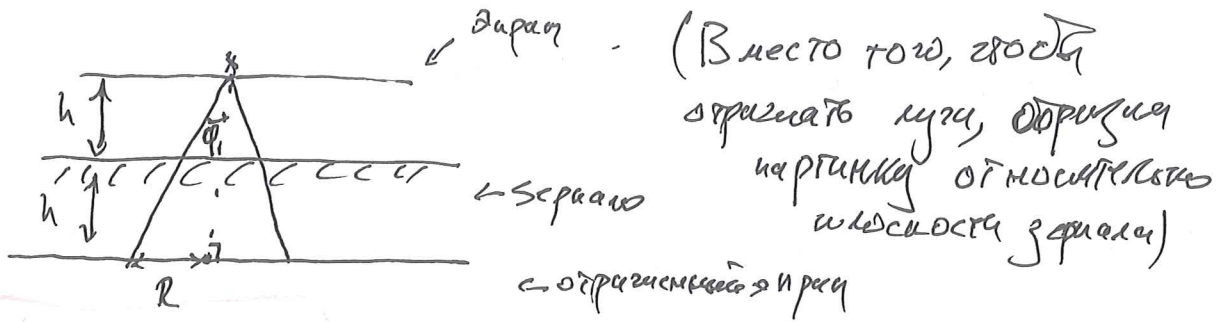 экран
(Вместо того, чтобы
отражать лучи, образим
картинку относительно
плоскости зеркала)
h
φ
h
← зеркало
R
← отраженный экран